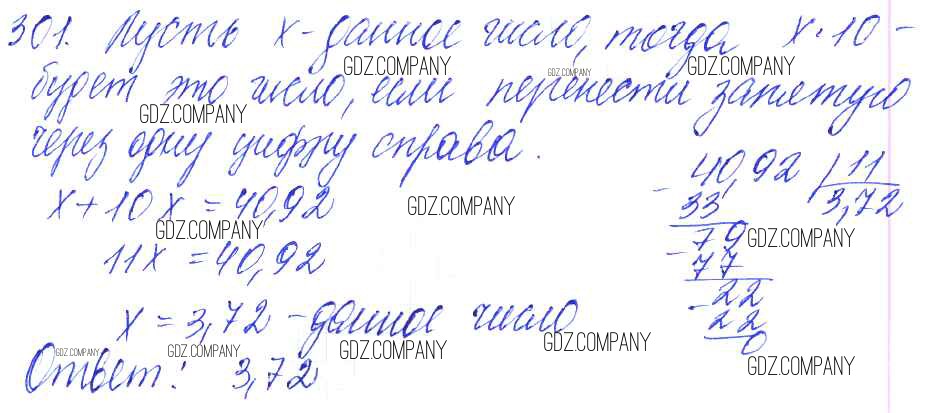 301. Пусть x - данное число, тогда x·10 -
GDZ.COMPANY GDZ.COMPANY GDZ.COMPANY
будет это число, если перенести запятую
GDZ.COMPANY
через одну цифру справа.
x+10x = 40,92
GDZ.COMPANY
GDZ.COMPANY
11x = 40,92
x = 3,72 - данное число
GDZ.COMPANY GDZ.COMPANY GDZ.COMPANY GDZ.COMPANY
Ответ: 3,72
- 40,92 | 11
33 3,72
- 79
GDZ.COMPANY
77
- 22
22
0
GDZ.COMPANY